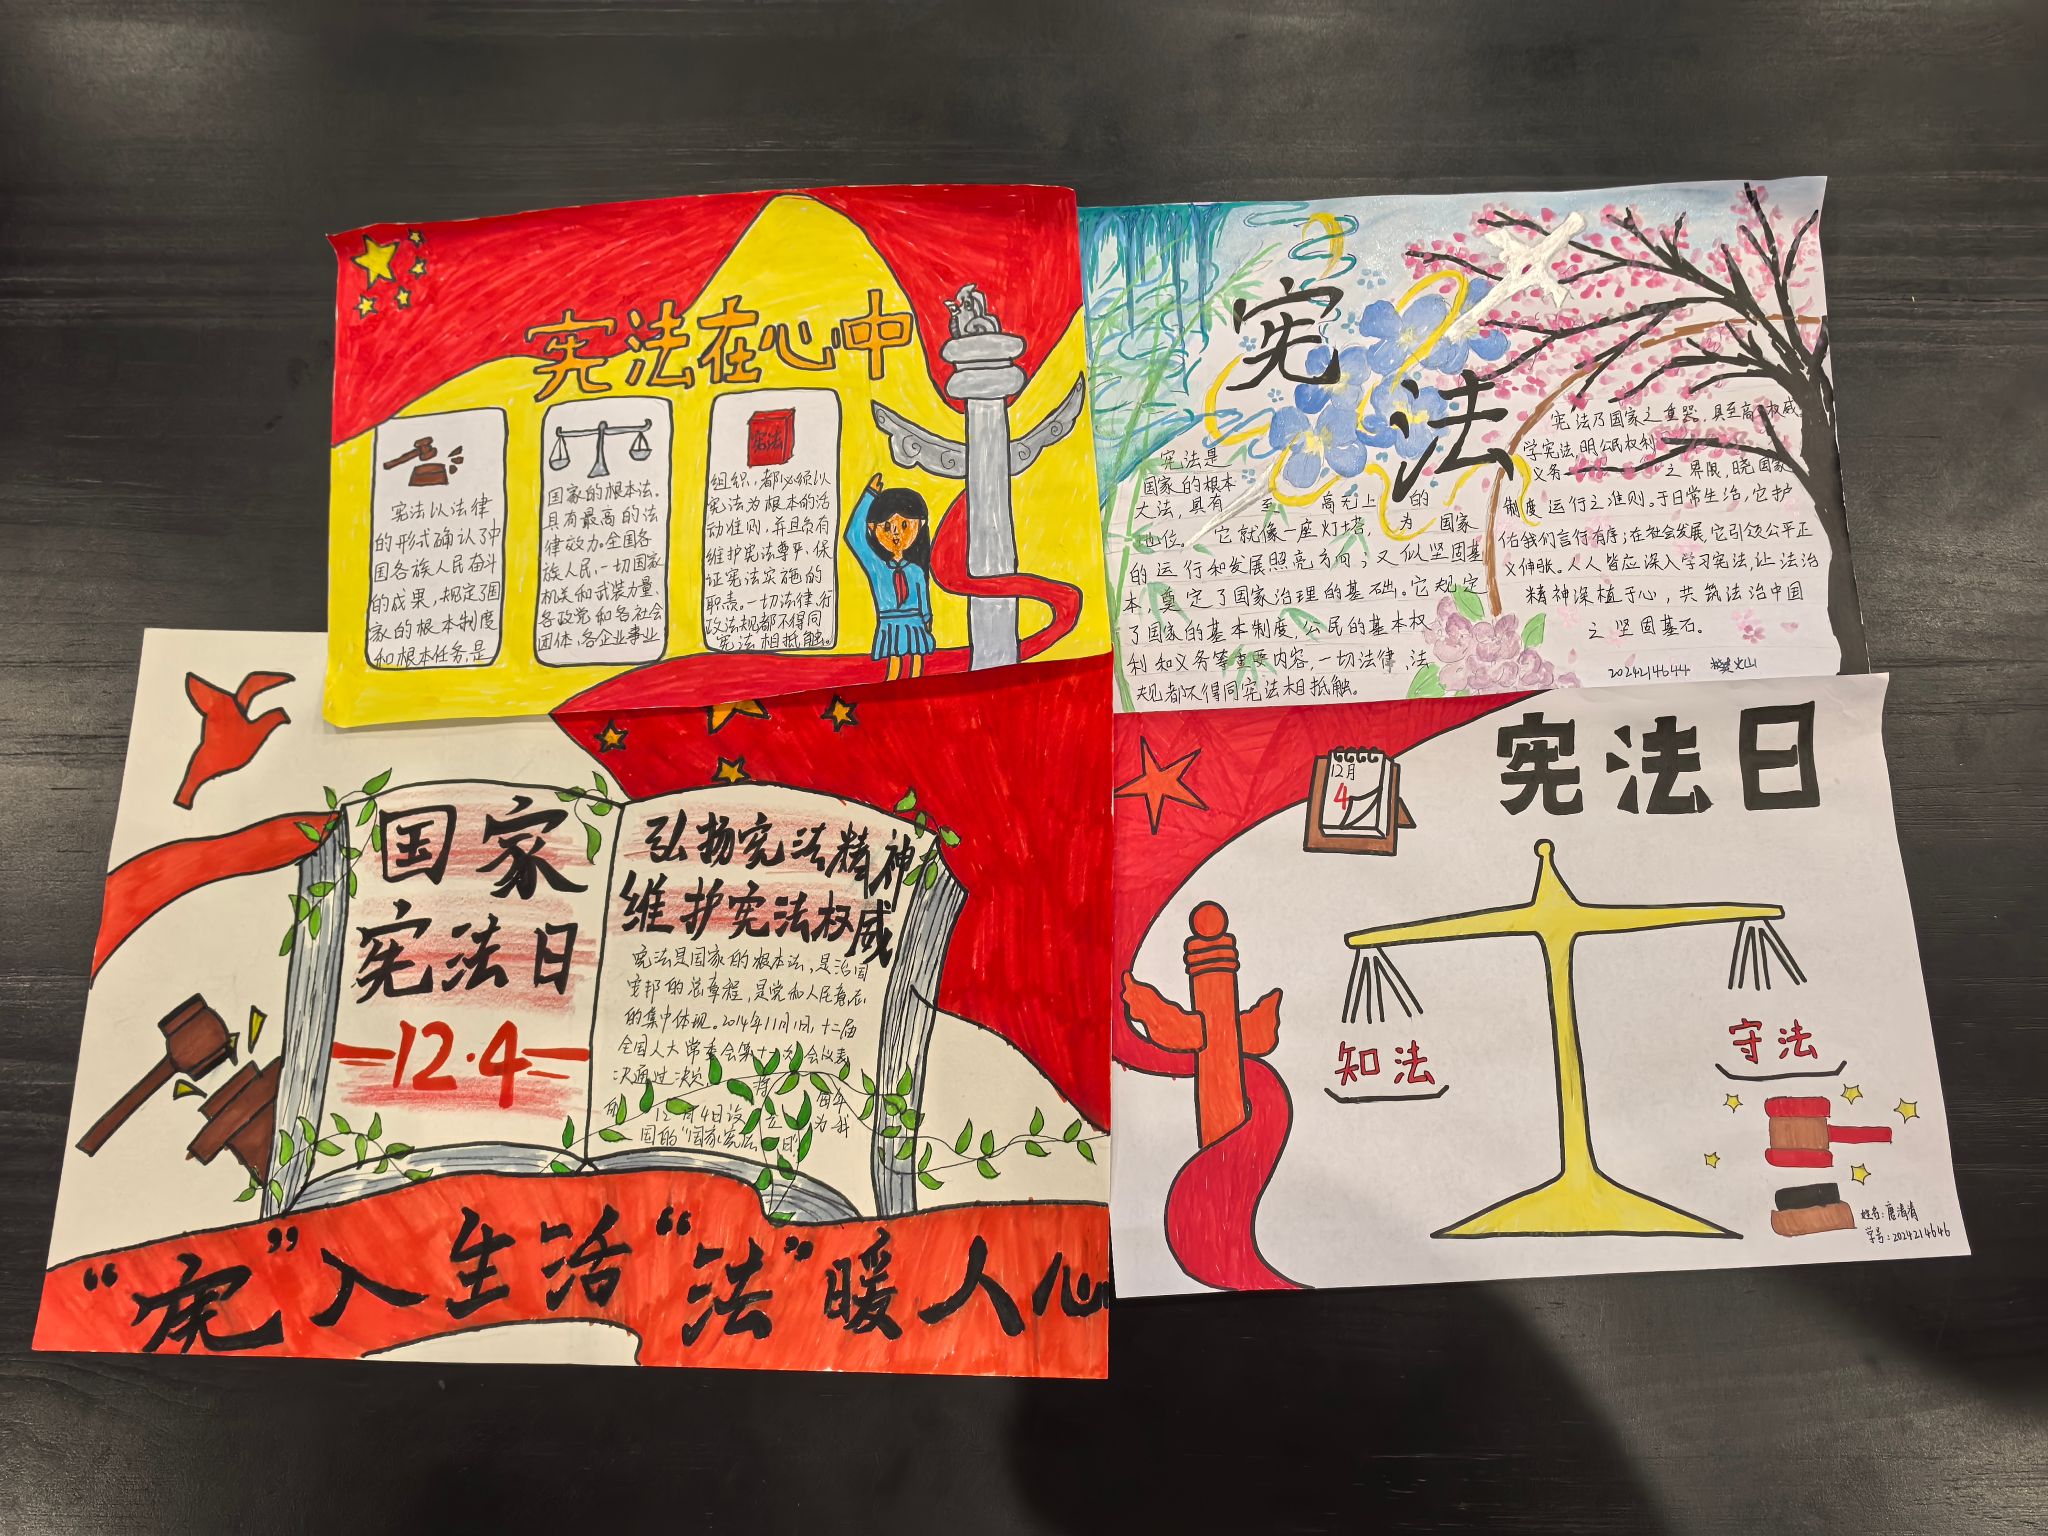 宪法在心中
宪法以法律
的形式确认了中
国各族人民奋斗
的成果,规定了国
家的根本制度
和根本任务,是
国家的根本法。
具有最高的法
律效力。全国各
族人民、一切国家
机关和武装力量、
各政党和各社会
团体、各企业事业
宪法
组织,都必须以
宪法为根本的活
动准则,并且负有
维护宪法尊严、保
证宪法实施的
职责。一切法律、行
政法规都不得同
宪法相抵触。
宪法
宪法是
国家的根本
大法,具有 至 高无上 的
地位。 它就像一座灯塔, 为 国家
的运行和发展照亮方向;又似坚固基
本,奠定了国家治理的基础。它规定
了国家的基本制度,公民的基本权
利和义务等重要内容,一切法律、法
规都不得同宪法相抵触。
宪法乃国家之重器,具至高权威。
学宪法,明公民权利
义务 之界限,晓国家
制度运行之准则。于日常生活,它护
佑我们言行有序;在社会发展,它引领公平正
义伸张。人人皆应深入学习宪法,让法治
精神深植于心,共筑法治中国
之坚固基石。
2024214644
国家
宪法日
12·4
弘扬宪法精神
维护宪法权威
宪法是国家的根本法,是治国
安邦的总章程,是党和人民意志
的集中体现。2014年11月1日,十二届
全国人大常委会第十一次会议表
决通过决定, 将 每年
的 12月4日设 立 为我
国的“国家宪法 日”
“宪”入生活“法”暖人心
宪法日
12月
4
知法
守法
姓名:唐清清
学号:2024214646